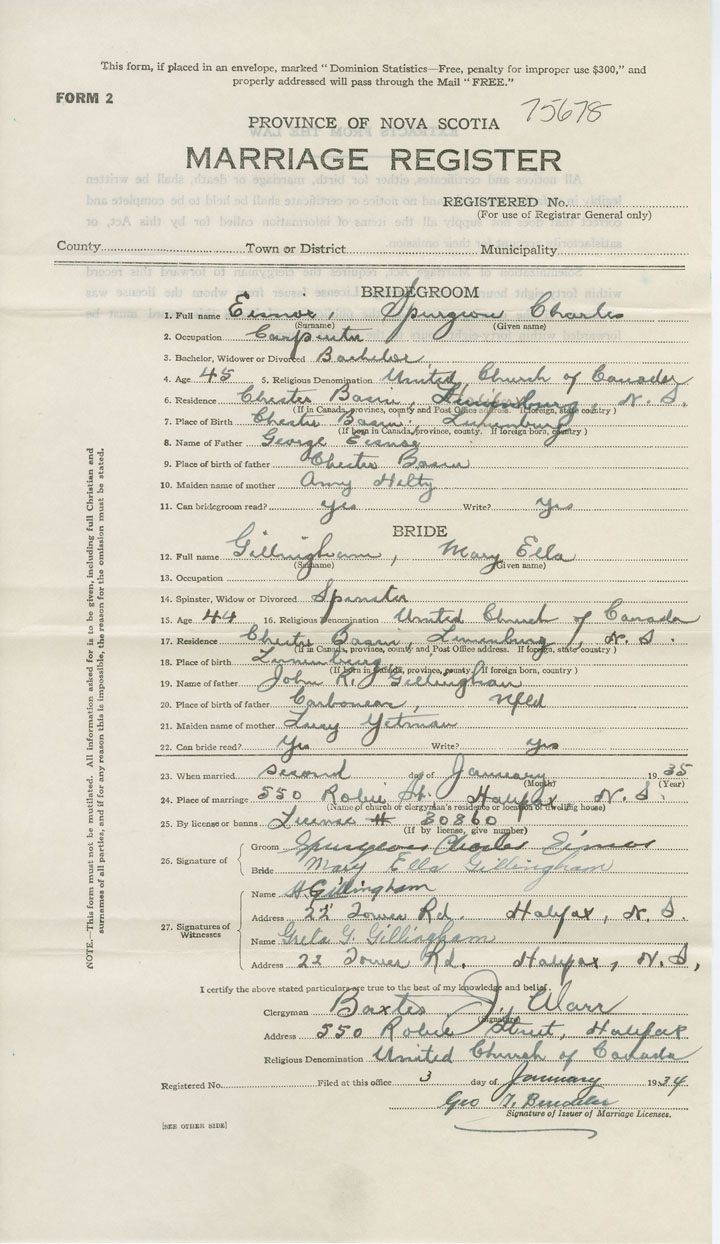 This form, if placed in an envelope, marked "Dominion Statistics—Free, penalty for improper use $300," and
properly addressed will pass through the Mail "FREE."
FORM 2
75678
PROVINCE OF NOVA SCOTIA
MARRIAGE REGISTER
REGISTERED No.
(For use of Registrar General only)
County Town or District Municipality
BRIDEGROOM
1. Full name Eisnor, Spurgeon Charles
(Surname) (Given name)
2. Occupation Carpenter
3. Bachelor, Widower or Divorced Bachelor
4. Age 45 5. Religious Denomination United Church of Canada
6. Residence Chester Basin, Lunenburg, N. S.
(If in Canada, province, county and Post Office address. If foreign, state country)
7. Place of Birth Chester Basin, Lunenburg
(If born in Canada, province, county. If foreign born, country)
8. Name of Father George Eisnor
9. Place of birth of father Chester Basin
10. Maiden name of mother Amy Hilty
11. Can bridegroom read? Yes Write? Yes
BRIDE
12. Full name Gillingham, Mary Ella
(Surname) (Given name)
13. Occupation
14. Spinster, Widow or Divorced Spinster
15. Age 44 16. Religious Denomination United Church of Canada
17. Residence Chester Basin, Lunenburg, N. S.
(If in Canada, province, county and Post Office address. If foreign, state country)
18. Place of birth Lunenburg
(If born in Canada, province, county. If foreign born, country)
19. Name of father John R. Gillingham
20. Place of birth of father Carbonear, Nfld
21. Maiden name of mother Lucy Yetman
22. Can bride read? Yes Write? Yes
23. When married second day of January 1935
(Month) (Year)
24. Place of marriage 550 Robie St. Halifax N. S.
(Name of church or clergyman's residence or location of dwelling house)
25. By license or banns License # 30860
(If by license, give number)
26. Signature of Groom Spurgeon Charles Eisnor
Bride Mary Ella Gillingham
27. Signatures of Witnesses
Name H Gillingham
Address 22 Tower Rd. Halifax, N. S.
Name Greta G. Gillingham
Address 22 Tower Rd. Halifax, N. S,
I certify the above stated particulars are true to the best of my knowledge and belief.
Clergyman Baxter J. Warr
(Signature)
Address 550 Robie Street, Halifax
Religious Denomination United Church of Canada
Registered No. Filed at this office 3 day of January 1934
Geo T.
Signature of Issuer of Marriage Licenses.
[SEE OTHER SIDE]
NOTE.—This form must not be mutilated. All information asked for is to be given, including full Christian and
surnames of all parties, and if for any reason this is impossible, the reason for the omission must be stated.